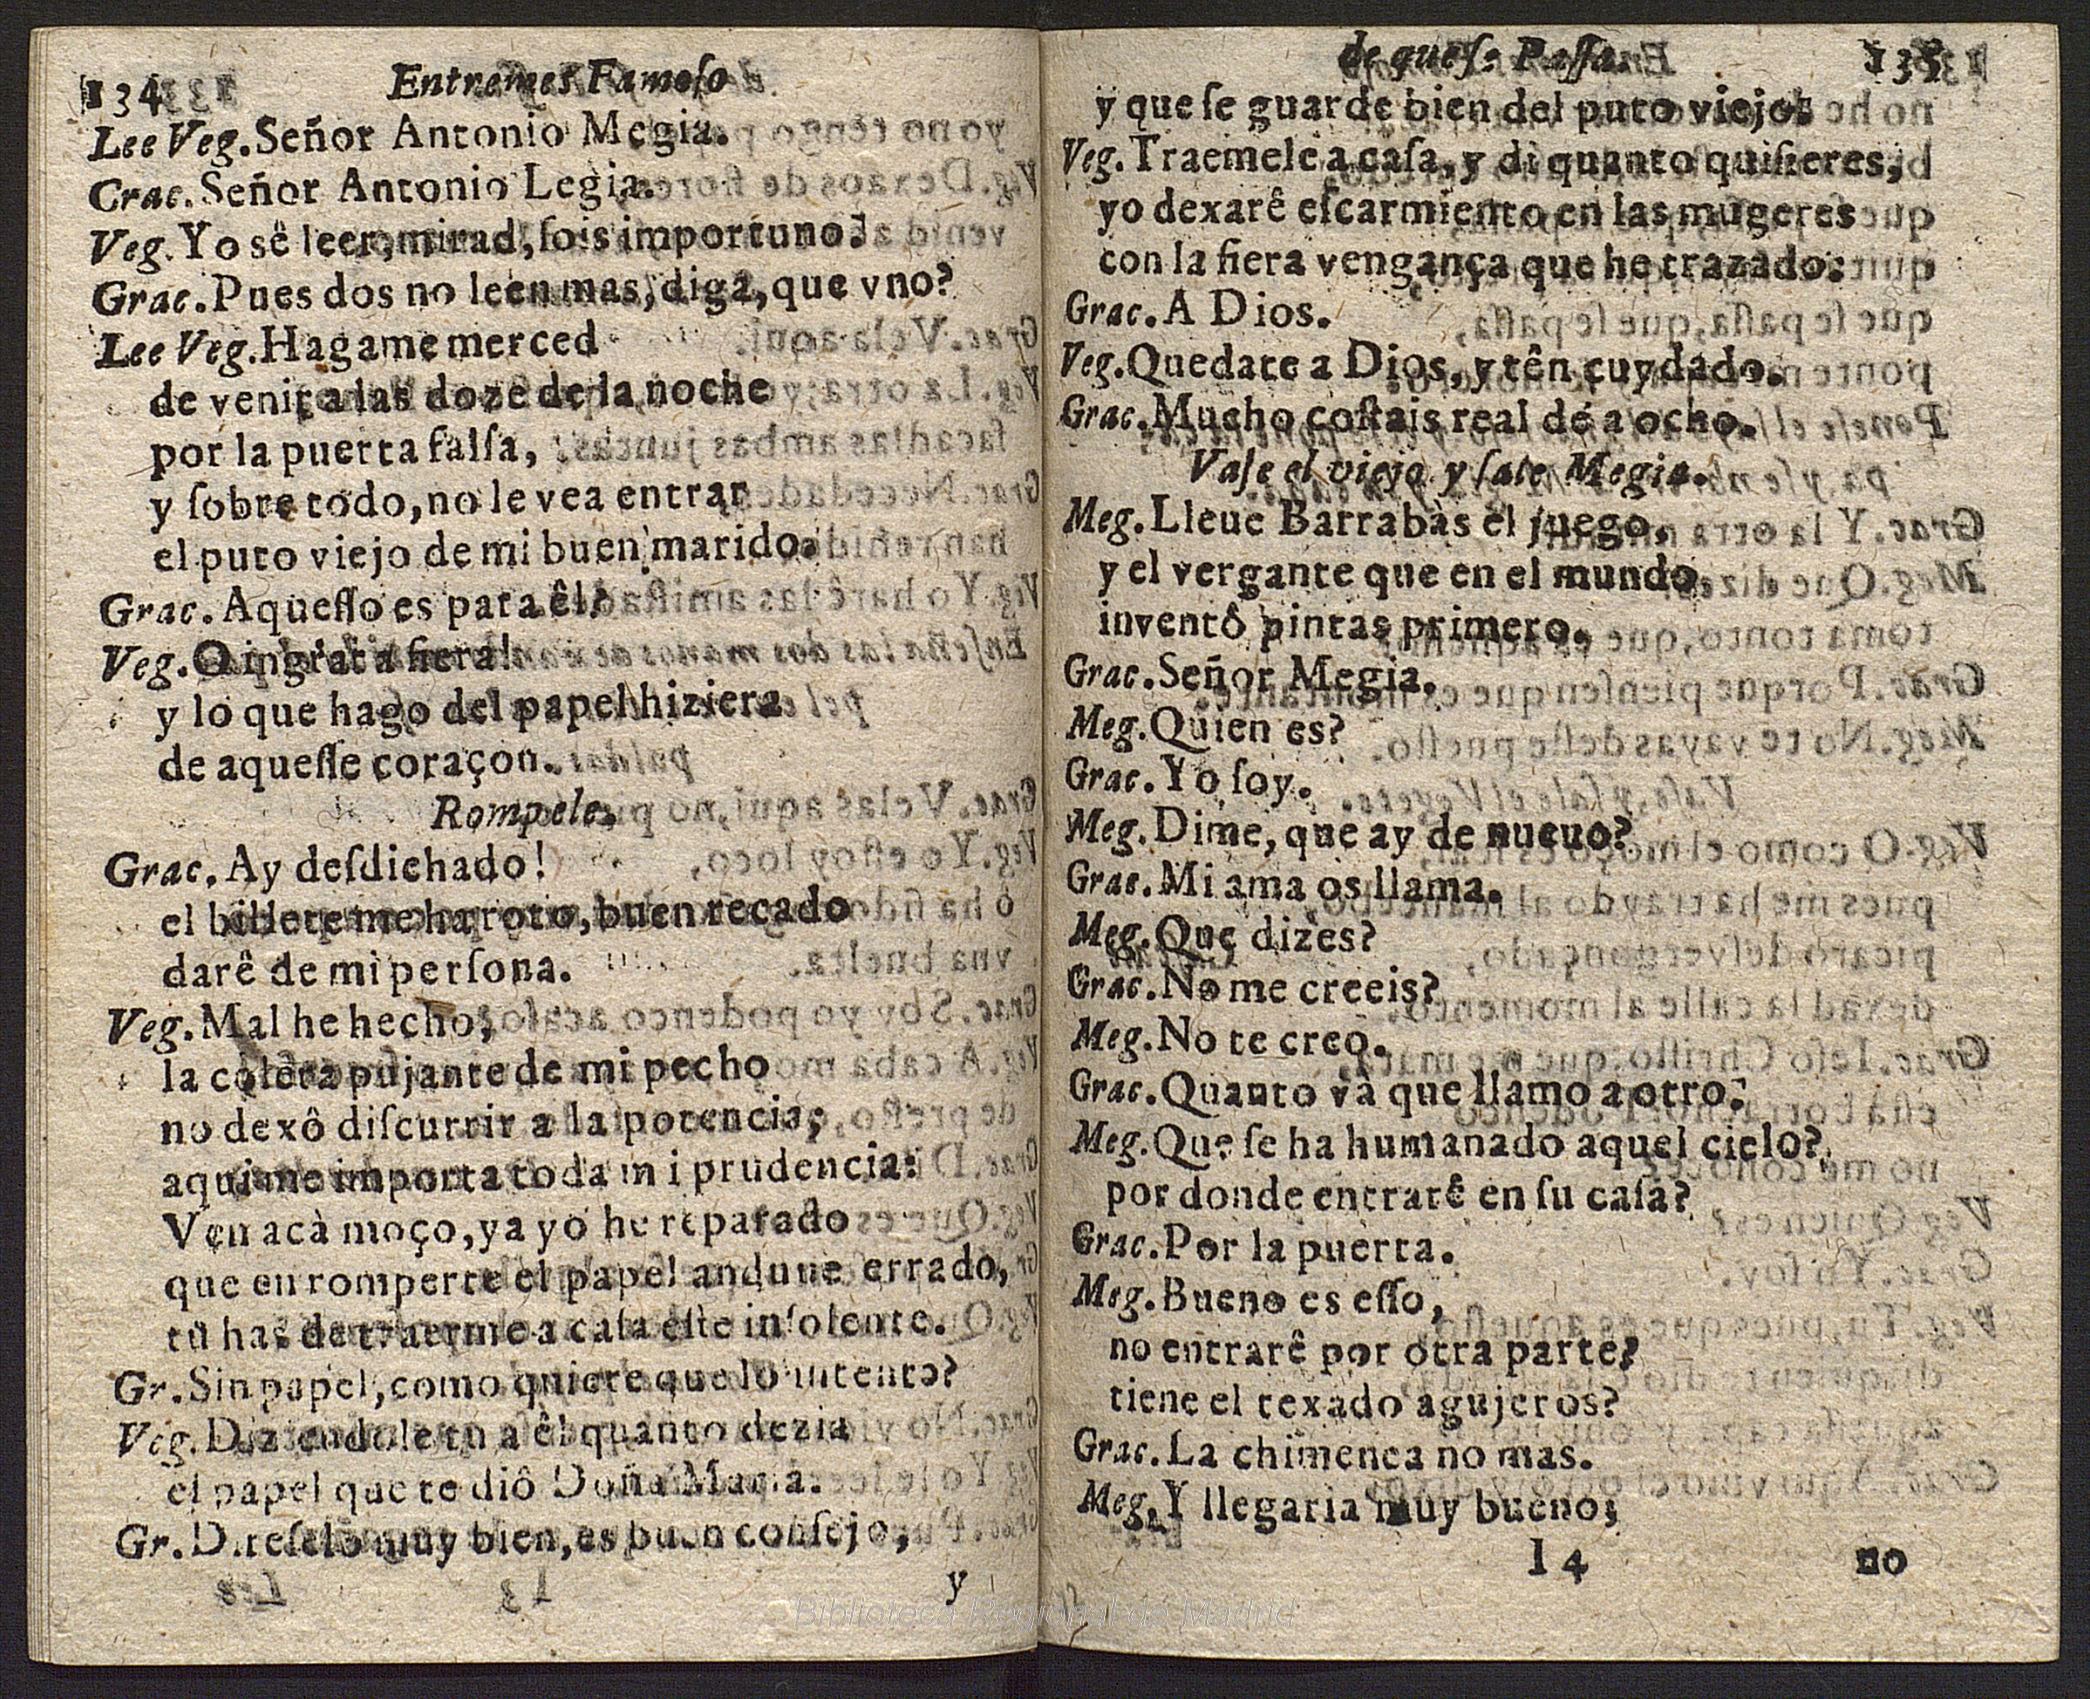 134 Entremes Famoſo
Lee Veg. Señor Antonio Megia.
Crac. Señor Antonio Legia.
Veg. Yo sê leer, mirad, ſois importuno?
Grac. Pues dos no leen mas, diga, que vno?
Lee Veg. Hagame merced
de venir a las doze de la noche
por la puerta falſa,
y ſobre todo, no le vea entrar
el puto viejo de mi buen marido.
Grac. Aqueſſo es para êl?
Veg. O ingrata fiera!
y lo que hago del papel hiziera
de aqueſſe coraçon.
Rompele.
Grac. Ay deſdichado!
el billete me ha roto, buen recado
darê de mi perſona.
Veg. Mal he hecho,
la colera pujante de mi pecho
no dexô diſcurrir a la potencia;
aqui me importa toda mi prudencia:
Ven acà moço, ya yo he reparado
que en romperte el papel anduue errado,
tû has de traerme a caſa eſte inſolente.
Gr. Sin papel, como quiere que lo intento?
Veg. Diziendole tu a êl quanto dezia
el papel que te diô Doña Maria.
Gr. Direſelo muy bien, es buen conſejo,
y
de queſe Paſſa. 135
y que ſe guarde bien del puto viejo.
Veg. Traemele a caſa, y di quanto quiſieres,
yo dexarê eſcarmiento en las mugeres
con la fiera vengança que he trazado.
Grac. A Dios.
Veg. Quedate a Dios, y tên cuydado.
Grac. Mucho coſtais real de a ocho.
Vaſe el viejo y ſale Megia.
Meg. Lleue Barrabàs el juego,
y el vergante que en el mundo
inventô pintas primero.
Grac. Señor Megia.
Meg. Quien es?
Grac. Yo ſoy.
Meg. Dime, que ay de nueuo?
Grac. Mi ama os llama.
Meg. Que dizes?
Grac. No me creeis?
Meg. No te creo.
Grac. Quanto và que llamo a otro?
Meg. Que ſe ha humanado aquel cielo?
por donde entrarê en ſu caſa?
Grac. Por la puerta.
Meg. Bueno es eſſo,
no entrarê por otra parte?
tiene el texado agujeros?
Grac. La chimenea no mas.
Meg. Y llegaria muy bueno;
I 4 no
Biblioteca Regional de Madrid